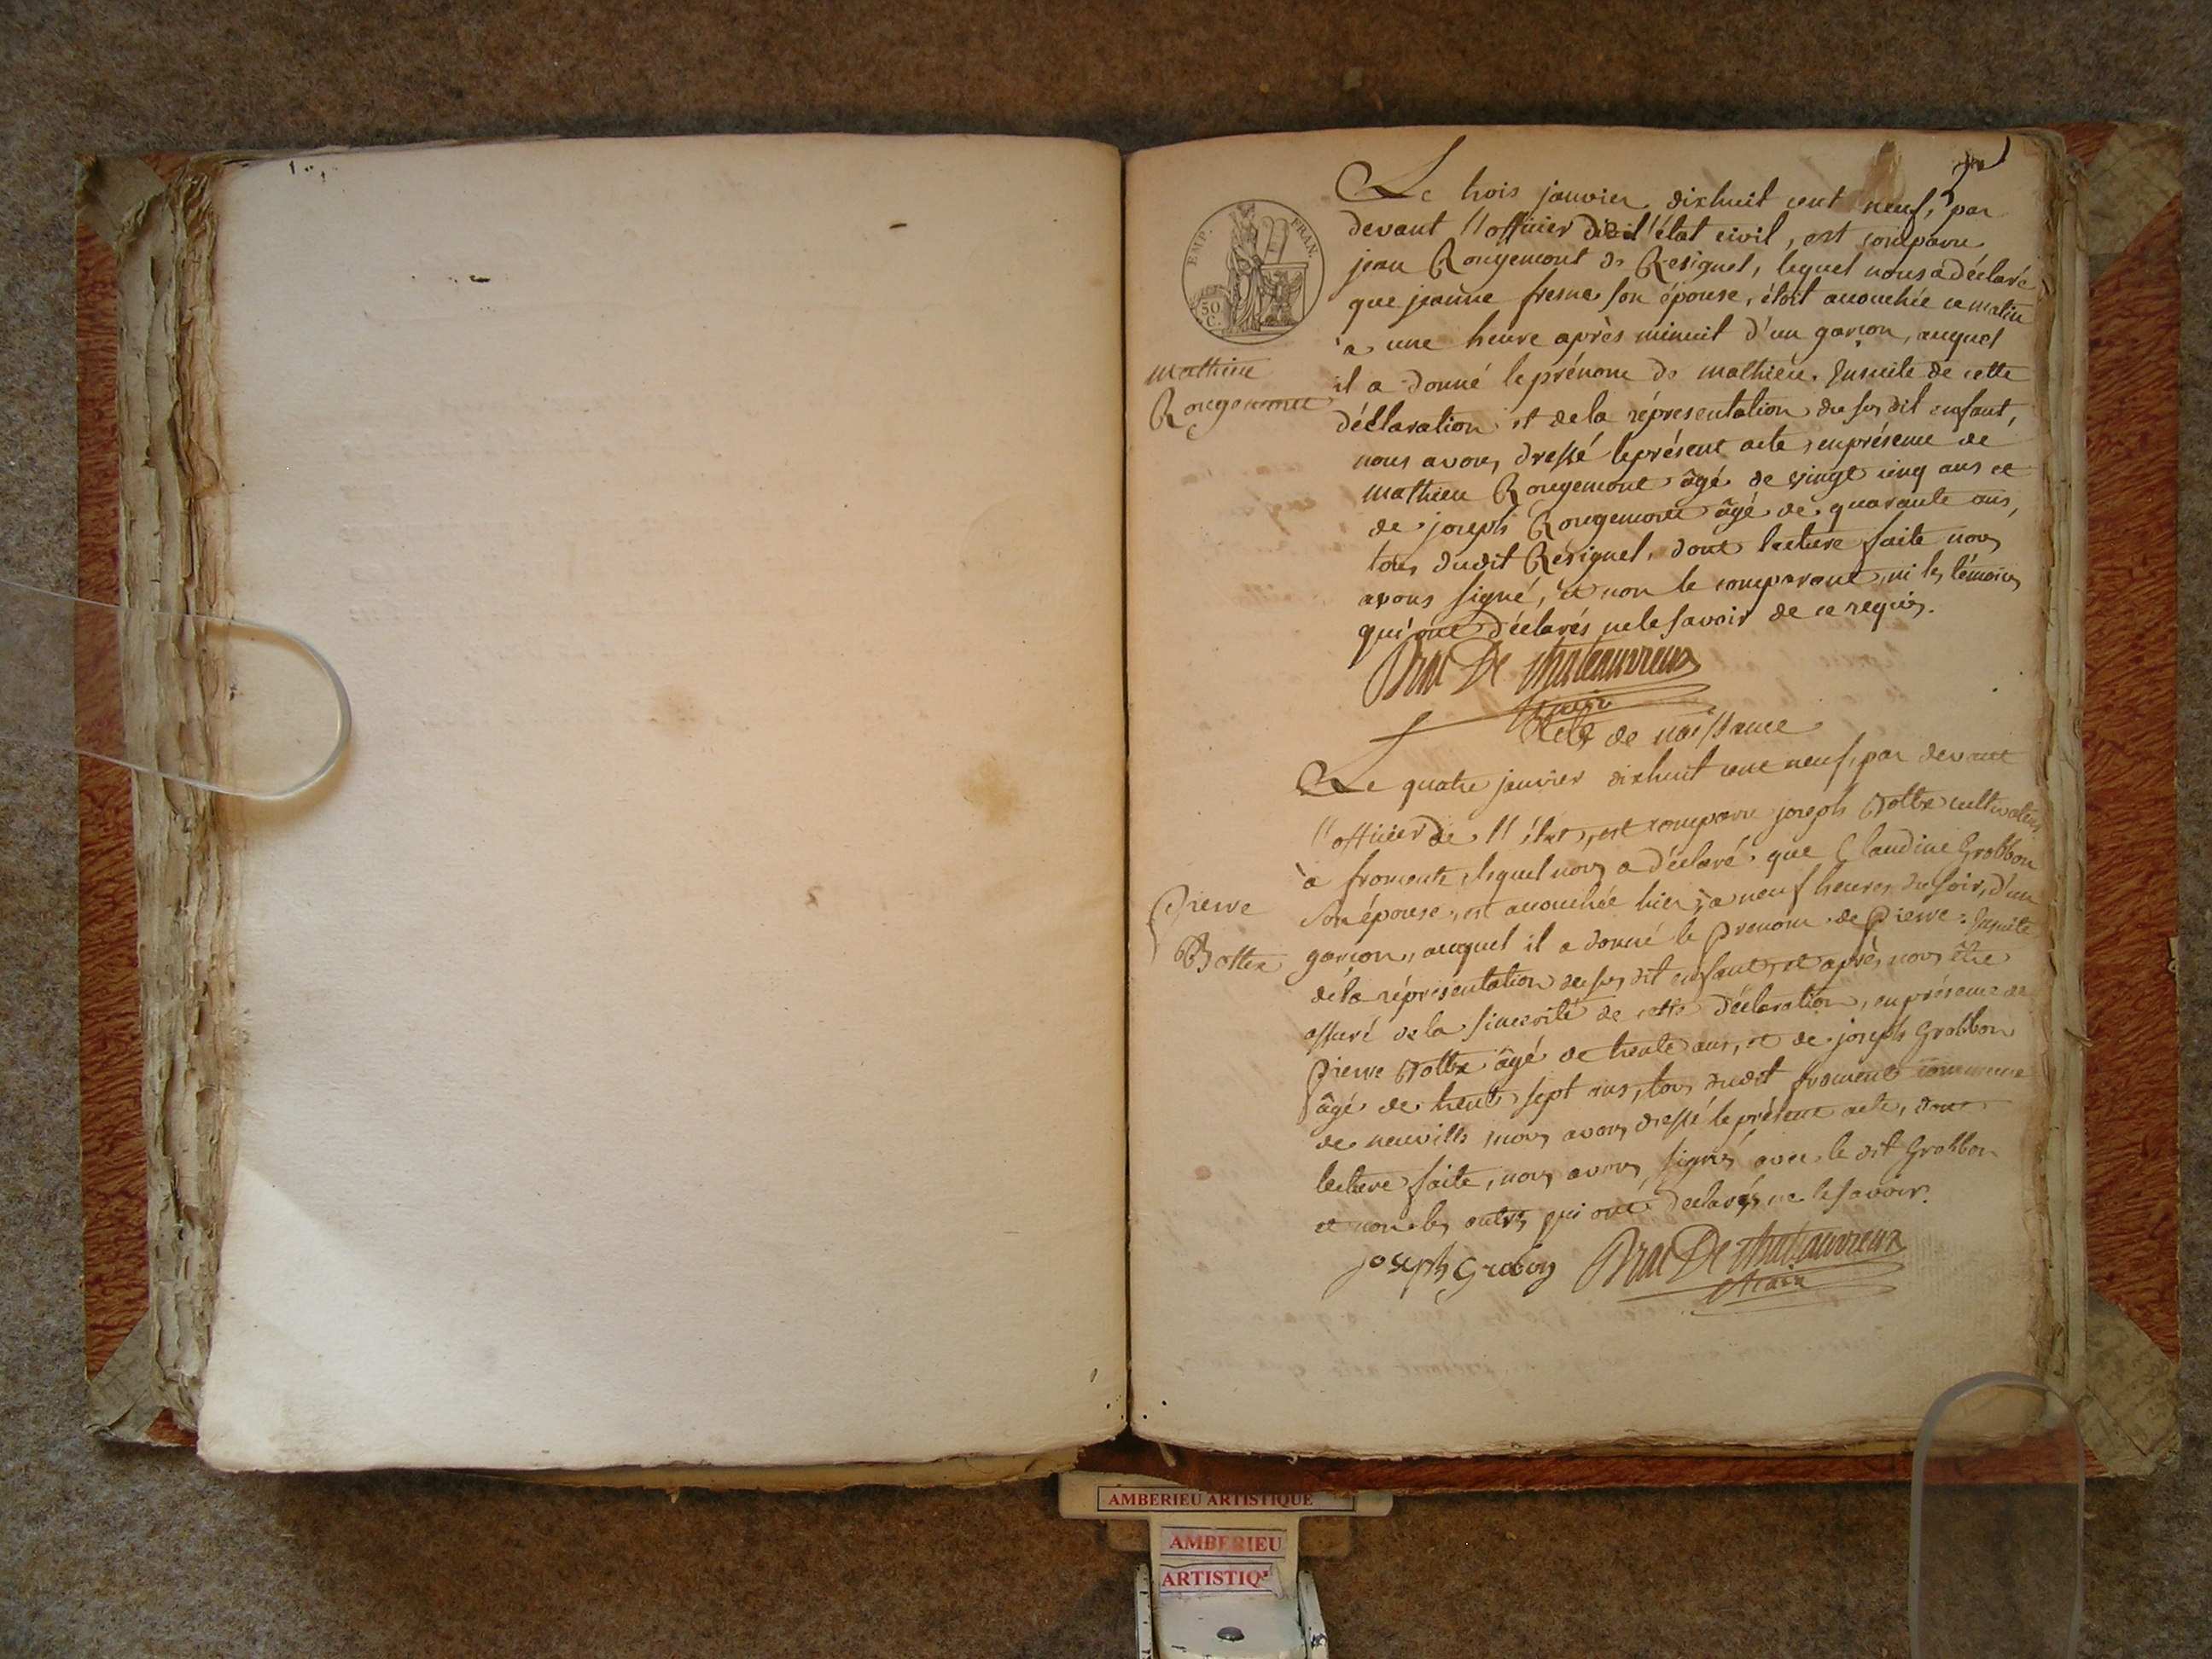 Le trois janvier dixhuit cent neuf, par
devant l'officier de l'état civil, est comparu
EMP. FRAN.
50 C.
jean Rougemont de Resignel, lequel nous a déclaré
que jeanne fresne son épouse, étoit accouchée ce matin
à une heure après minuit d'un garçon, auquel
mathieu
Rougemont
il a donné le prénom de mathieu. Ensuite de cette
déclaration et de la réprésentation du susdit enfant,
nous avons dressé le présent acte, en présence de
mathieu Rougemont âgé de vingt cinq ans et
de joseph Rougemont âgé de quarante ans,
tous dudit Resignel, dont lecture faite nous
avons signé, et non le comparant, ni les témoins
qui ont déclarés ne le savoir de ce requis.
Brac De Chateauvieux
maire
Acte de naissance
Le quatre janvier dixhuit cent neuf, par devant
l'officier de l'état, est comparu joseph Bottex cultivateur
à fromente, lequel nous a déclaré que Claudine Grobbon
son épouse, est accouchée hier, à neuf heures du soir, d'un
Pierre
Bottex
garçon, auquel il a donné le prenom de Pierre. Ensuite
de la réprésentation du susdit enfant, et après nous être
assuré de la sincerité de cette déclaration, en présence de
Pierre Bottex âgé de trente ans, et de joseph Grobbon
âgé de trente sept ans, tous dudit fromente commune
de neuville, nous avons dressé le présent acte, dont
lecture faite, nous avons signés avec le dit Grobbon
et non les autres qui ont declarés ne le savoir.
joseph Grobon Brac De Chateauvieux
Maire
AMBERIEU ARTISTIQUE
AMBERIEU
ARTISTIQ